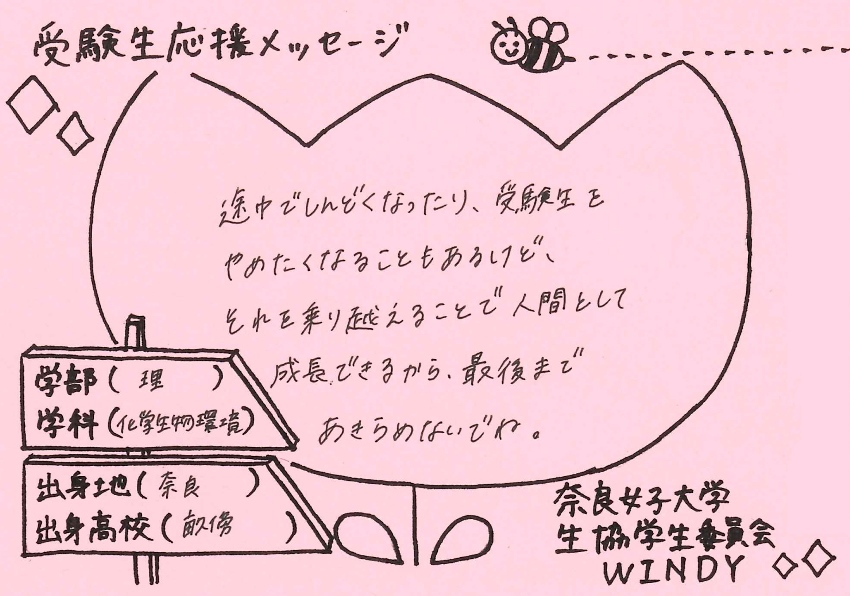 受験生応援メッセージ
途中でしんどくなったり、受験生を
やめたくなることもあるけど、
それを乗り越えることで人間として
成長できるから、最後まで
あきらめないでね。
学部(理)
学科(化学生物環境)
出身地(奈良)
出身高校(畝傍)
奈良女子大学
生協学生委員会
WINDY